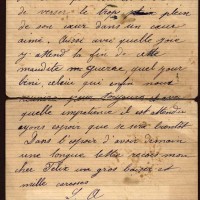 de venir le plein
de son cœur dans un cœur
aimé. Aussi avec quelle joie
j'y attend la fin de cette
maudite guerre, quel jour
béni celui qui enfin nous

quelle impatience il est attendu
ayons espoir que se sera bientôt
Dans l'espoir d'avoir demain
une longue lettre reçois mon
cher Félix un gros baiser et
mille caresses